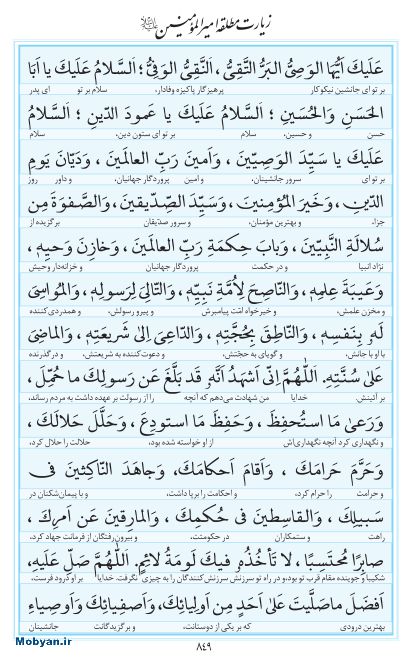 زیارت مطلقه امیرالمؤمنین علیه‌السلام
عَلَیكَ اَیُّهَا الوَصِیُّ البَرُّ التَّقِیُّ، اَلنَّقِیُّ الوَفِیُّ؛ اَلسَّلامُ عَلَیكَ یا اَبَا
بر تو ای جانشین نیکوکار پرهیزگار پاکیزه وفادار، سلام بر تو ای پدر
الحَسَنِ وَالحُسَینِ؛ اَلسَّلامُ عَلَیكَ یا عَمودَ الدّینِ؛ اَلسَّلامُ
حسن و حسین، سلام بر تو ای ستون دین، سلام
عَلَیكَ یا سَیِّدَ الوَصِیّینَ، وَاَمینَ رَبِّ العالَمینَ، وَدَیّانَ یَومِ
بر تو ای سرور جانشینان، و امین پروردگار جهانیان، و داور روز
الدّینِ، وَخَیرَ المُؤمِنینَ، وَسَیِّدَ الصِّدّیقینَ، وَالصَّفوَةَ مِن
جزا، و بهترین مؤمنان، و سرور صدّیقان برگزیده از
سُلالَةِ النَّبِیّینَ، وَبابَ حِكمَةِ رَبِّ العالَمینَ، وَخازِنَ وَحیِهٖ،
نژاد انبیا و در حکمت پروردگار جهانیان و خزانه‌دار وحیش
وَعَیبَةَ عِلمِهٖ، وَالنّاصِحَ لِاُمَّةِ نَبِیِّهٖ، وَالتّالِیَ لِرَسولِهٖ، وَالمُواسِیَ
و مخزن علمش، و خیرخواه امّت پیامبرش و پیرو رسولش، و همدردی‌کننده
لَهٗ بِنَفسِهٖ، وَالنّاطِقَ بِحُجَّتِهٖ، وَالدّاعِیَ اِلیٰ شَریعَتِهٖ، وَالماضِیَ
با او با جانش، و گویای به حجّتش، و دعوت‌کننده به شریعتش، و درگذرنده
عَلیٰ سُنَّتِهٖ. اَللّٰهُمَّ اِنّی اَشهَدُ اَنَّهٗ قَد بَلَّغَ عَن رَسولِكَ ما حُمِّلَ،
بر آئینش، خدایا من شهادت می‌دهم که آنچه را از رسولت بر عهده داشت به مردم رساند،
وَرَعیٰ مَا استُحفِظَ، وَحَفِظَ مَا استودِعَ، وَحَلَّلَ حَلالَكَ،
و نگهداری کرد آنچه نگهداری‌اش از او خواسته شده بود، حلالت را حلال کرد،
وَحَرَّمَ حَرامَكَ، وَاَقامَ اَحكامَكَ، وَجاهَدَ النّاكِثینَ فی
و حرامت را حرام کرد، و احکامت را برپا داشت، و با پیمان‌شکنان در
سَبیلِكَ، وَالقاسِطینَ فی حُكمِكَ، وَالمارِقینَ عَن اَمرِكَ،
راهت و ستمکاران در حکومتت، و بیرون‌رفتگان از فرمانت جهاد کرد،
صابِرًا مُحتَسِبًا، لا تَأخُذُهٗ فیكَ لَومَةُ لائِمٍ. اَللّٰهُمَّ صَلِّ عَلَیهِ،
شکیبا و جوینده مقام قرب تو بود، و در راه تو سرزنش سرزنش‌کنندگان را به چیزی نگرفت. خدایا بر او درود فرست،
اَفضَلَ ما صَلَّیتَ عَلیٰ اَحَدٍ مِن اَولِیائِكَ، وَاَصفِیائِكَ وَاَوصِیاءِ
بهترین درودی که بر یکی از دوستانت، و برگزیدگانت جانشینان
Mobyan.ir
٨٤٩